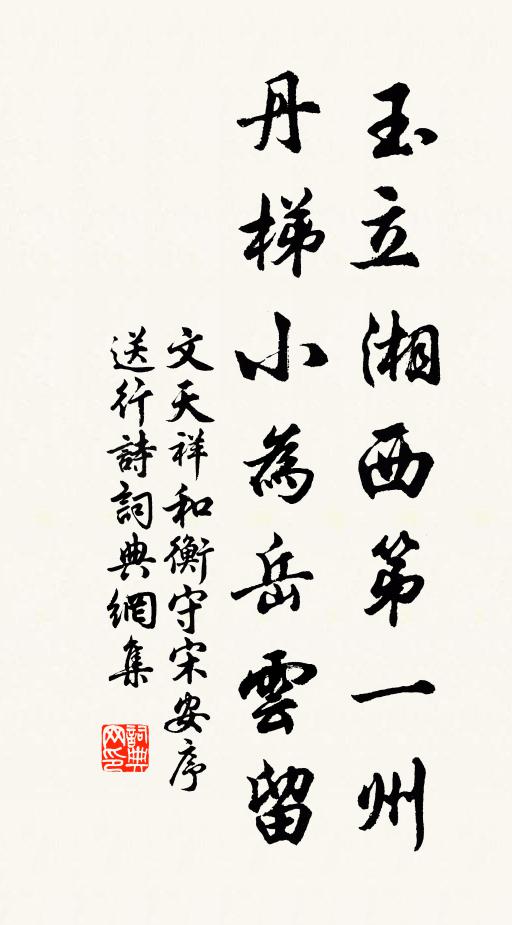 玉立湘西第一州
丹梯小為岳雲留
文天祥和衡守宋安序
送行詩詞典網集
詞典網印